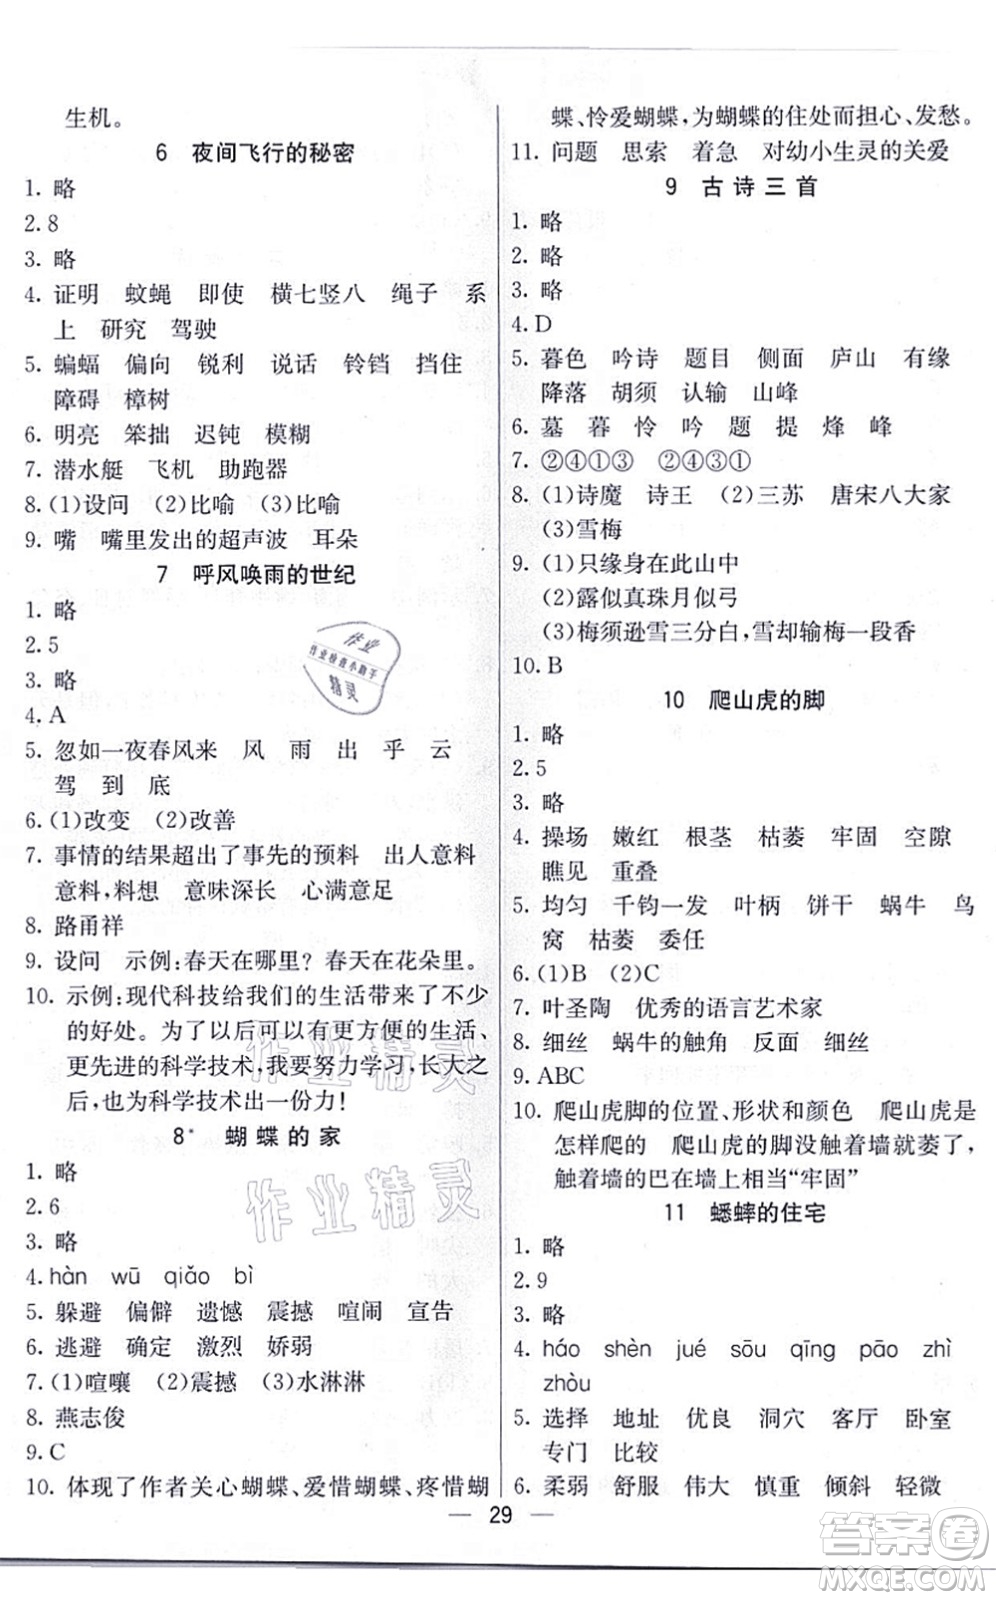 生机。
6 夜间飞行的秘密
1. 略
2.8
3. 略
4. 证明 蚊蝇 即使 横七竖八 绳子 系
上 研究 驾驶
5. 蝙蝠 偏向 锐利 说话 铃铛 挡住
障碍 樟树
6. 明亮 笨拙 迟钝 模糊
7. 潜水艇 飞机 助跑器
8. (1)设问 (2)比喻 (3)比喻
9. 嘴 嘴里发出的超声波 耳朵
7 呼风唤雨的世纪
1. 略
2.5
3. 略
4. A
5. 忽如一夜春风来 风 雨 出 乎 云
驾 到 底
6. (1)改变 (2)改善
7. 事情的结果超出了事先的预料 出人意料
意料,料想 意味深长 心满意足
8. 路甬祥
9. 设问 示例:春天在哪里？春天在花朵里。
10. 示例:现代科技给我们的生活带来了不少
的好处。为了以后可以有更方便的生活、
更先进的科学技术,我要努力学习,长大之
后,也为科学技术出一份力!
8* 蝴蝶的家
1. 略
2.6
3. 略
4. hàn wū qiǎo bì
5. 躲避 偏僻 遗憾 震撼 喧闹 宣告
6. 逃避 确定 激烈 娇弱
7. (1)喧嚷 (2)震撼 (3)水淋淋
8. 燕志俊
9. C
10. 体现了作者关心蝴蝶、爱惜蝴蝶、疼惜蝴
蝶、怜爱蝴蝶,为蝴蝶的住处而担心、发愁。
11. 问题 思索 着急 对幼小生灵的关爱
9 古诗三首
1. 略
2. 略
3. 略
4. D
5. 暮色 吟诗 题目 侧面 庐山 有缘
降落 胡须 认输 山峰
6. 墓 暮 怜 吟 题 提 烽 峰
7. ②④①③ ②④③①
8. (1)诗魔 诗王 (2)三苏 唐宋八大家
(3)雪梅
9. (1)只缘身在此山中
(2)露似真珠月似弓
(3)梅须逊雪三分白,雪却输梅一段香
10. B
10 爬山虎的脚
1. 略
2.5
3. 略
4. 操场 嫩红 根茎 枯萎 牢固 空隙
瞧见 重叠
5. 均匀 千钧一发 叶柄 饼干 蜗牛 鸟
窝 枯萎 委任
6. (1)B (2)C
7. 叶圣陶 优秀的语言艺术家
8. 细丝 蜗牛的触角 反面 细丝
9. ABC
10. 爬山虎脚的位置、形状和颜色 爬山虎是
怎样爬的 爬山虎的脚没触着墙就萎了,
触着墙的巴在墙上相当“牢固”
11 蟋蟀的住宅
1. 略
2.9
3. 略
4. háo shèn jué sōu qīng pāo zhì
zhòu
5. 选择 地址 优良 洞穴 客厅 卧室
专门 比较
6. 柔弱 舒服 伟大 慎重 倾斜 轻微
— 29 —
作业
作业检查小助手
精灵
作业精灵
作业精灵
答案圈
MXQE.COM